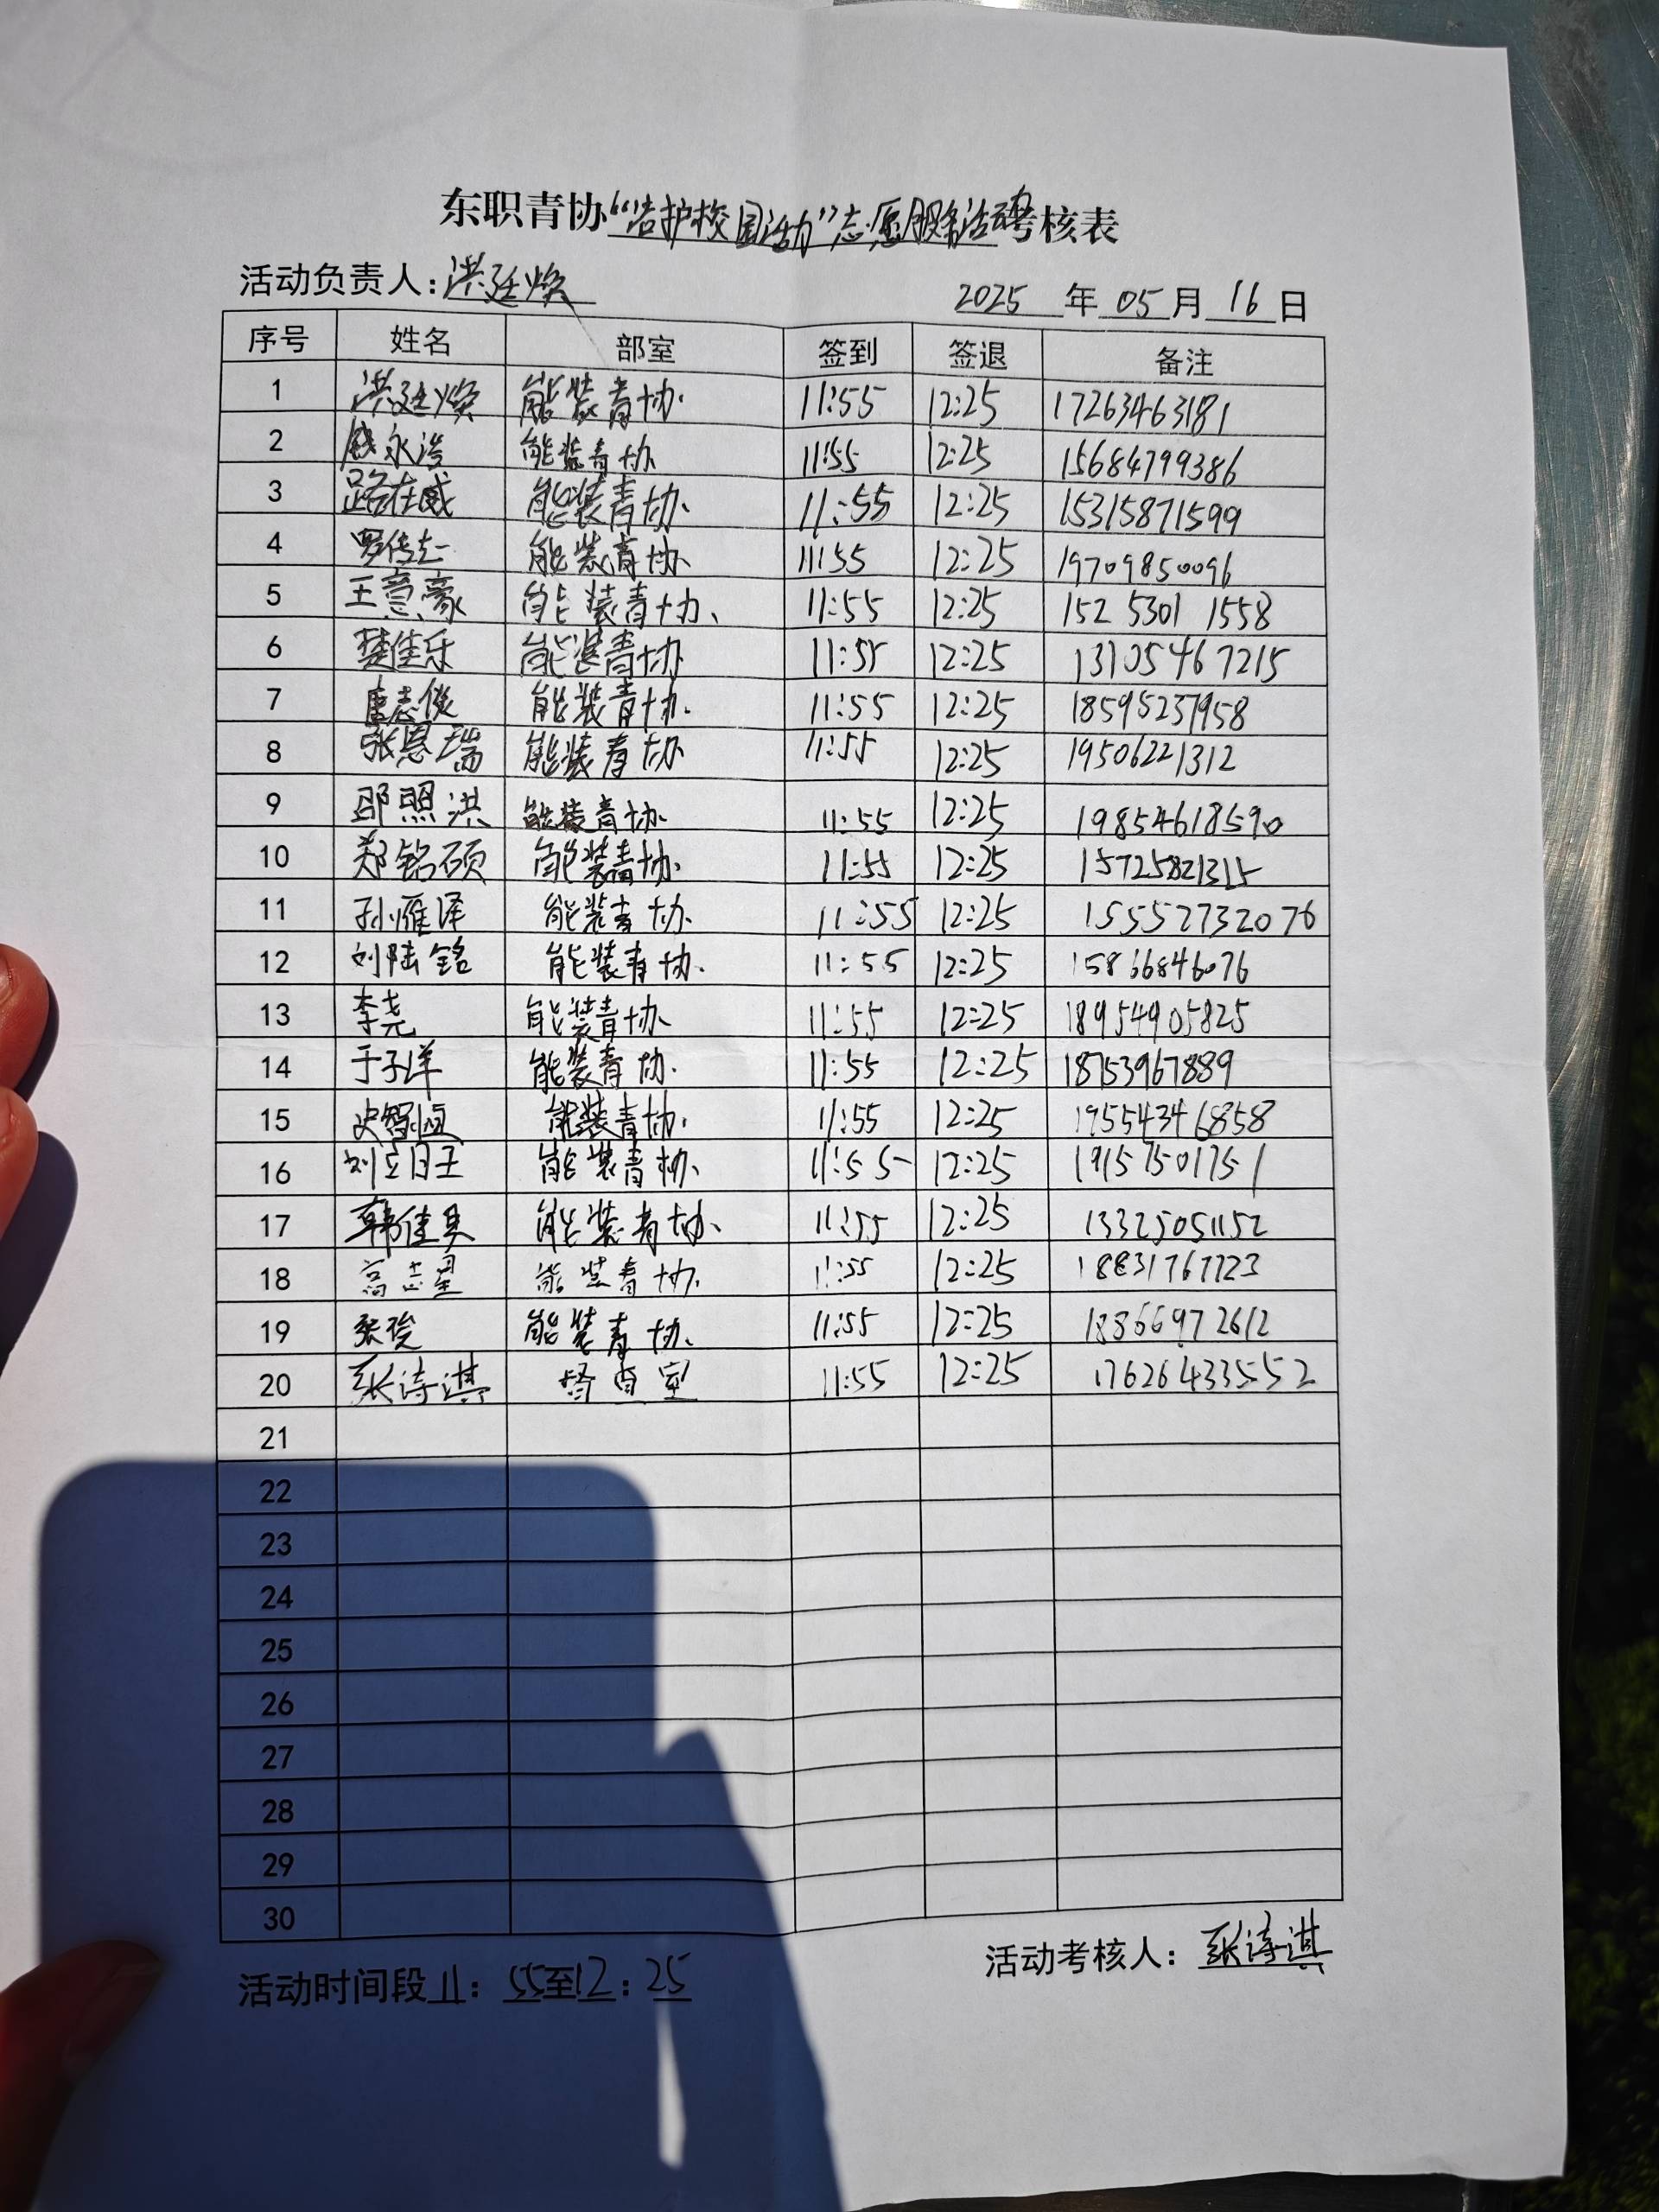 东职青协“洁护校园活动”志愿服务活动考核表
活动负责人：洪廷焕
2025 年 05 月 16 日
序号 姓名 部室 签到 签退 备注
1 洪廷焕 能装青协 11:55 12:25 17263463181
2 永浩 能装青协 11:55 12:25 15684799386
3 路在威 能装青协 11:55 12:25 15315871599
4 罗传志 能装青协 11:55 12:25 19709850096
5 王意豪 能装青协 11:55 12:25 152 5301 1558
6 樊佳乐 能装青协 11:55 12:25 13105467215
7 唐志俊 能装青协 11:55 12:25 18595237958
8 张恩瑞 能装青协 11:55 12:25 19506221312
9 邵照洪 能装青协 11:55 12:25 19854618590
10 郑铭硕 能装青协 11:55 12:25 15725821315
11 孙雁泽 能装青协 11:55 12:25 15552732076
12 刘陆铭 能装青协 11:55 12:25 15866846076
13 李尧 能装青协 11:55 12:25 18954905825
14 于子洋 能装青协 11:55 12:25 18753967889
15 史智恒 能装青协 11:55 12:25 19554346858
16 刘立明王 能装青协 11:55 12:25 19157501751
17 韩佳良 能装青协 11:55 12:25 13325051152
18 高志星 能装青协 11:55 12:25 18831767723
19 张俊 能装青协 11:55 12:25 18866972612
20 张诗淇 督查室 11:55 12:25 17626433552
21
22
23
24
25
26
27
28
29
30
活动考核人：张诗淇
活动时间段 11：55至12：25